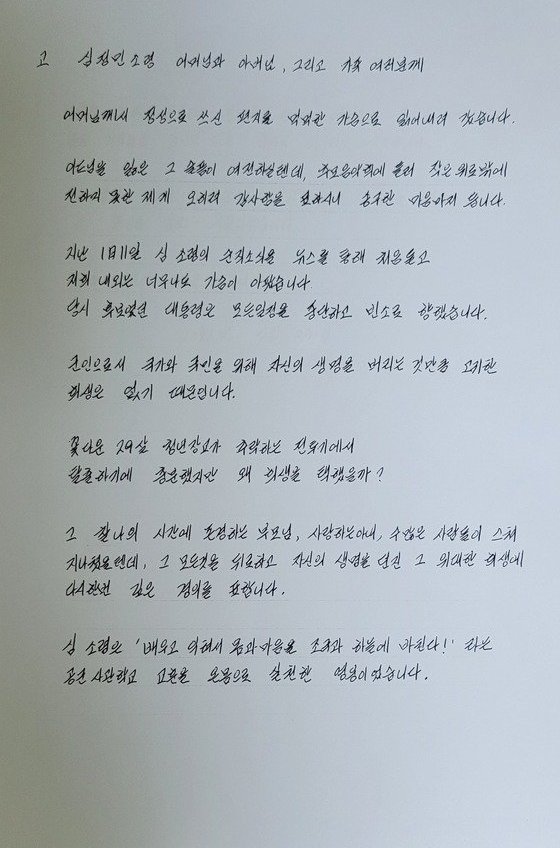 고 심정민 소령 어머님과 아버님, 그리고 가족 여러분께
어머님께서 정성으로 쓰신 편지를 먹먹한 가슴으로 읽어내려 갔습니다.
아드님을 잃은 그 슬픔이 여전하실텐데, 추모음악회에 들러 작은 위로밖에
전하지 못한 제게 오히려 감사함을 표하시니 송구한 마음마저 듭니다.
지난 1月11일 심 소령의 순직소식을 뉴스를 통해 처음듣고
저희 내외는 너무나도 가슴이 아팠습니다
당시 후보였던 대통령은 모든일정을 중단하고 빈소로 향했습니다.
군인으로서 국가와 국민을 위해 자신의 생명을 버리는 것만큼 고귀한
희생은 없기 때문입니다.
꽃다운 29살 청년장교가 추락하는 전투기에서
탈출하기에 충분했지만 왜 희생을 택했을까?
그 찰나의 시간에 존경하는 부모님, 사랑하는아내, 수많은 사람들이 스쳐
지나갔을텐데, 그 모든것을 뒤로하고 자신의 생명을 던진 그 위대한 희생에
다시한번 깊은 경의를 표합니다.
심 소령은 '배우고 익혀서 몸과마음을 조국과 하늘에 바친다!' 라는
공군 사관학교 교훈을 온몸으로 실천한 영웅이었습니다.